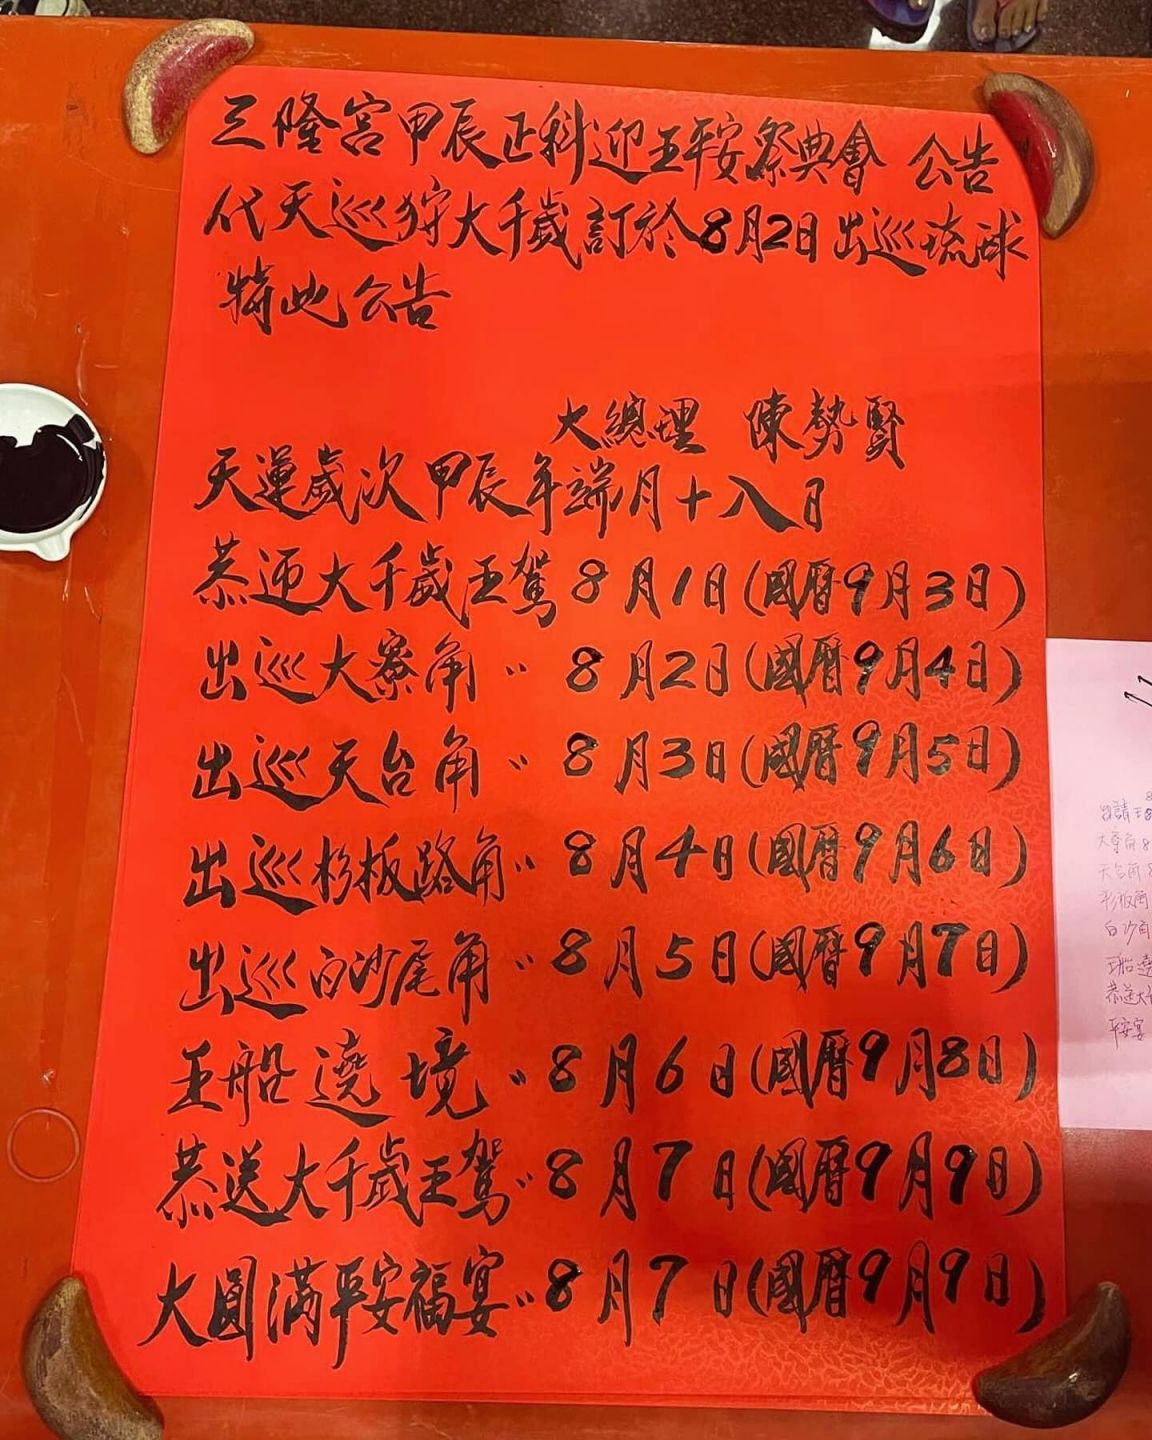 三隆宮甲辰正科迎王平安祭典會 公告
代天巡狩大千歲訂於8月2日出巡琉球
特此公告
大總理 陳勢賢
天運歲次甲辰年端月十八日
恭迎大千歲王駕8月1日(國曆9月3日)
出巡大寮角〃8月2日(國曆9月4日)
出巡天台角〃8月3日(國曆9月5日)
出巡杉板路角〃8月4日(國曆9月6日)
出巡白沙尾角〃8月5日(國曆9月7日)
王船遶境〃8月6日(國曆9月8日)
恭送大千歲王駕〃8月7日(國曆9月9日)
大圓滿平安福宴〃8月7日(國曆9月9日)
大寮角8
天台角8
杉板角
白沙角
王船遶
恭送大
平安宴